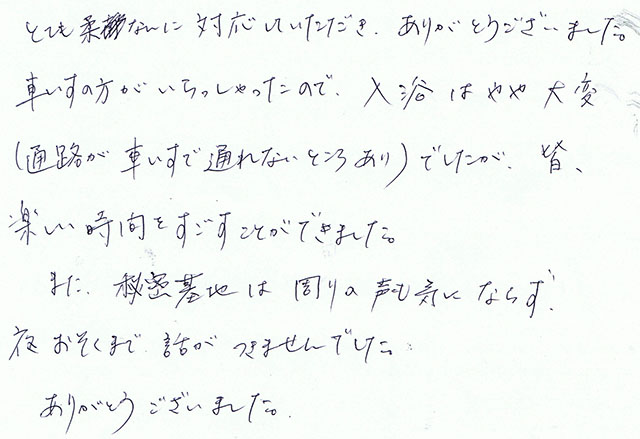 とても柔軟なんに対応していただき、ありがとうございました。
車いすの方がいらっしゃったので、入浴はやや大変
(通路が車いすで通れないところあり)でしたが、皆、
楽しい時間をすごすことができました。
また、秘密基地は周りの声も気にならず、
夜おそくまで話がつきませんでした。
ありがとうございました。